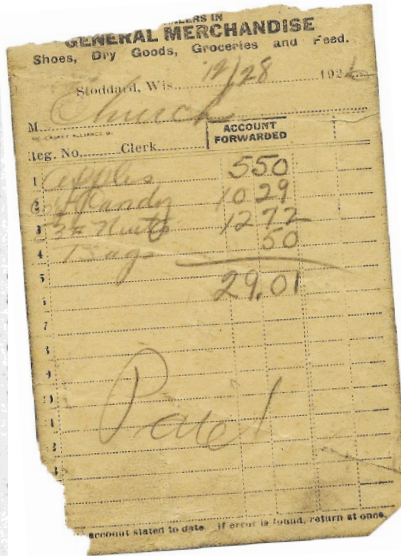 DEALERS IN
GENERAL MERCHANDISE
Shoes, Dry Goods, Groceries and Feed.
Stoddard, Wis. 12/28 192
M Church
ACCOUNT
FORWARDED
Reg. No. Clerk
1 Apples 5 50
2 Candy 10 29
3 Nuts 12 72
4 Bags 50
5 29.01
Paid
account stated to date. If error is found, return at once.